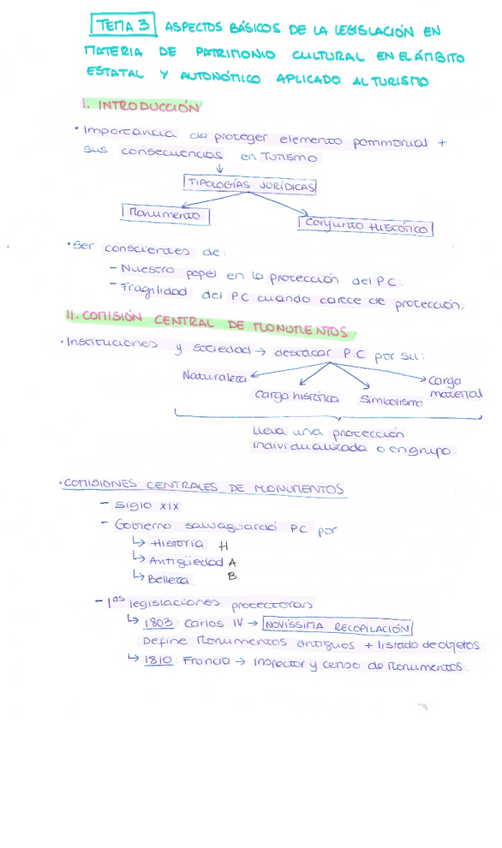 TEMA 3 ASPECTOS BÁSICOS DE LA LEGISLACIÓN EN
MATERIA DE PATRIMONIO CULTURAL EN EL ÁMBITO
ESTATAL Y AUTONÓMICO APLICADO AL TURISMO
I. INTRODUCCIÓN
· Importancia de proteger elemento patrimonial +
sus consecuencias en Turismo
↓
TIPOLOGÍAS JURÍDICAS
Monumento
Conjunto Histórico
· Ser conscientes de:
- Nuestro papel en la protección del P.C.
- Fragilidad del PC cuando carece de protección.
II. COMISIÓN CENTRAL DE MONUMENTOS.
· Instituciones y sociedad → destacar P.C por su:
Naturaleza
Carga histórica
Simbolismo
Carga material
Lleva una protección
individualizada o en grupo.
· COMISIONES CENTRALES DE MONUMENTOS
- Siglo XIX
- Gobierno salvaguardó PC por
↳ Historia H
↳ Antigüedad A
↳ Belleza B
- 1as legislaciones protectoras
↳ 1803: Carlos IV → NOVÍSSIMA RECOPILACIÓN
Define Monumentos antiguos + listado de objetos.
↳ 1810: Francia → Inspector y censo de Monumentos.